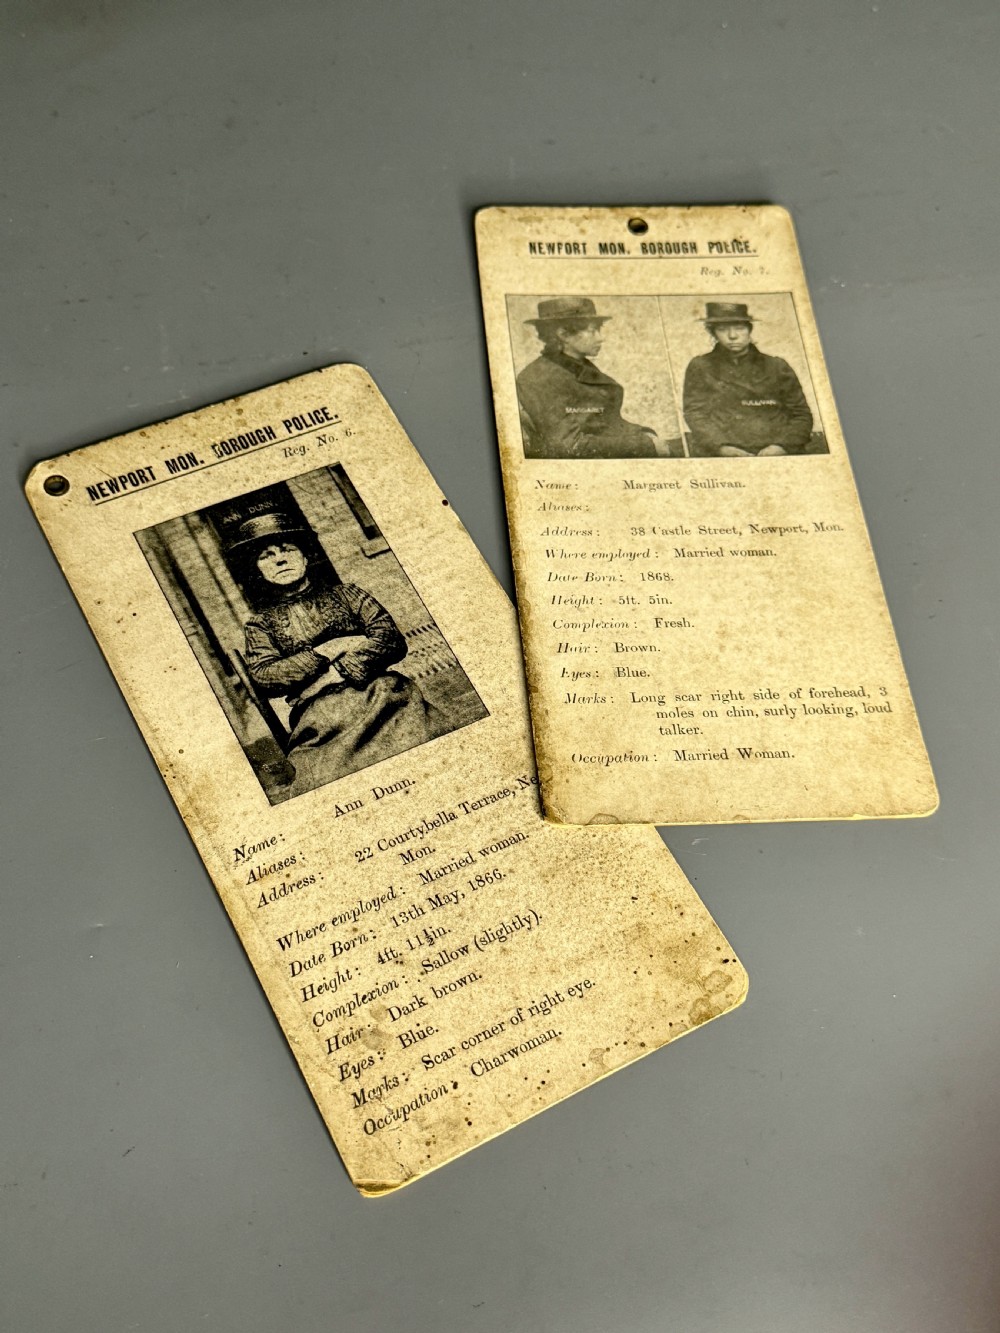 NEWPORT MON. BOROUGH POLICE.
Reg. No. 6.
ANN DUNN.
Name: Ann Dunn.
Aliases:
Address: 22 Courtybella Terrace, Ne
Mon.
Where employed: Married woman.
Date Born: 13th May, 1866.
Height: 4ft. 11½in.
Complexion: Sallow (slightly).
Hair: Dark brown.
Eyes: Blue.
Marks: Scar corner of right eye.
Occupation: Charwoman.
NEWPORT MON. BOROUGH POLICE.
Reg. No. 7.
MARGARET
SULLIVAN
Name: Margaret Sullivan.
Aliases:
Address: 38 Castle Street, Newport, Mon.
Where employed: Married woman.
Date Born: 1868.
Height: 5ft. 5in.
Complexion: Fresh.
Hair: Brown.
Eyes: Blue.
Marks: Long scar right side of forehead, 3
moles on chin, surly looking, loud
talker.
Occupation: Married Woman.